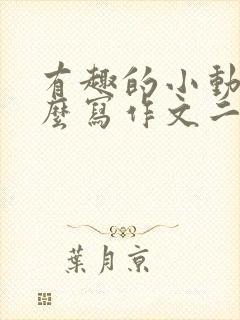 有趣的小動
麼寫作文二
葉月京